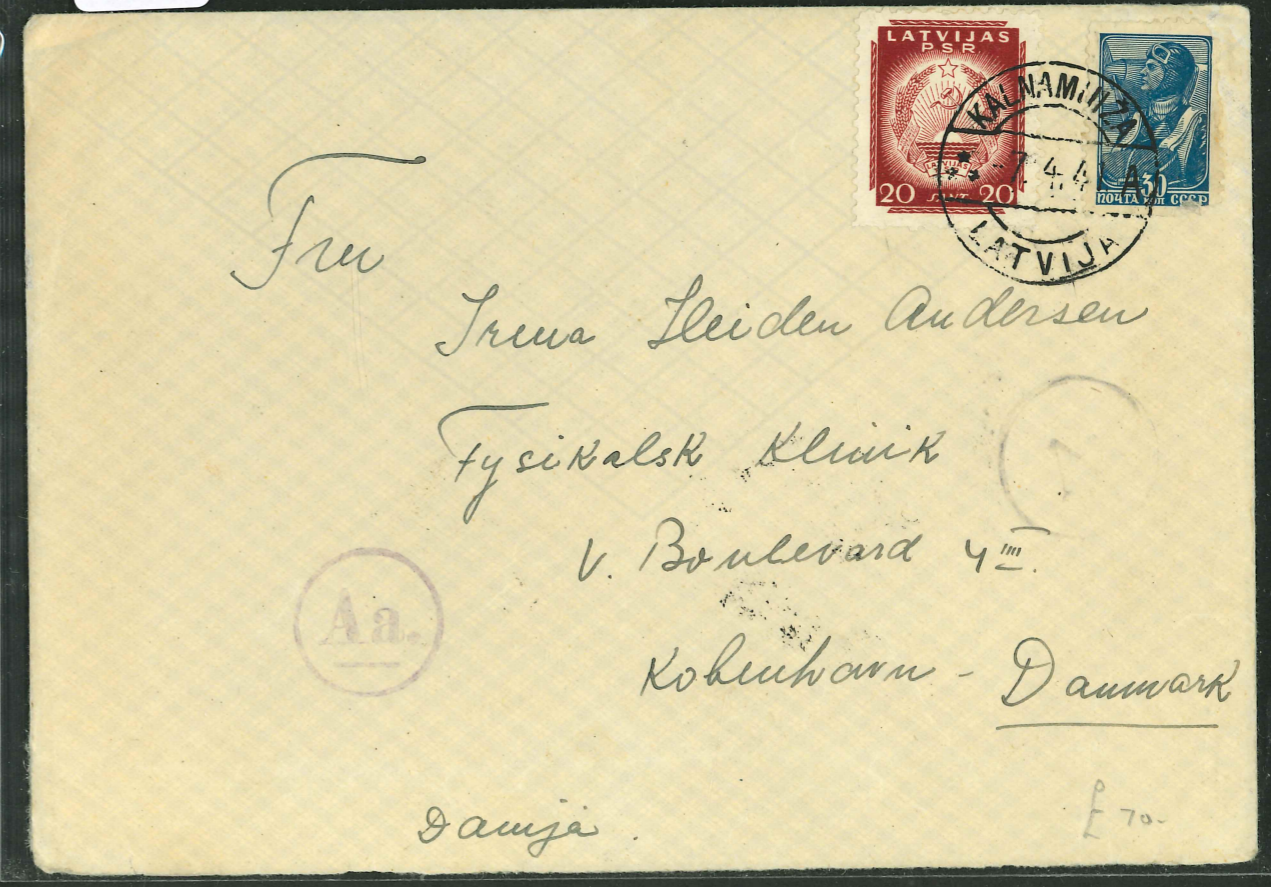 LATVIJAS
PSR
20 SANT. 20
30
ПОЧТА КОП СССР
KALNAMUIŽA
-7. 4. 4
A
LATVIJA
Fru
Irena Heiden Andersen
Fysikalsk Klinik
V. Boulevard 4 III.
Kobenhavn - Danmark
Aa.
Danija.
£ 70-